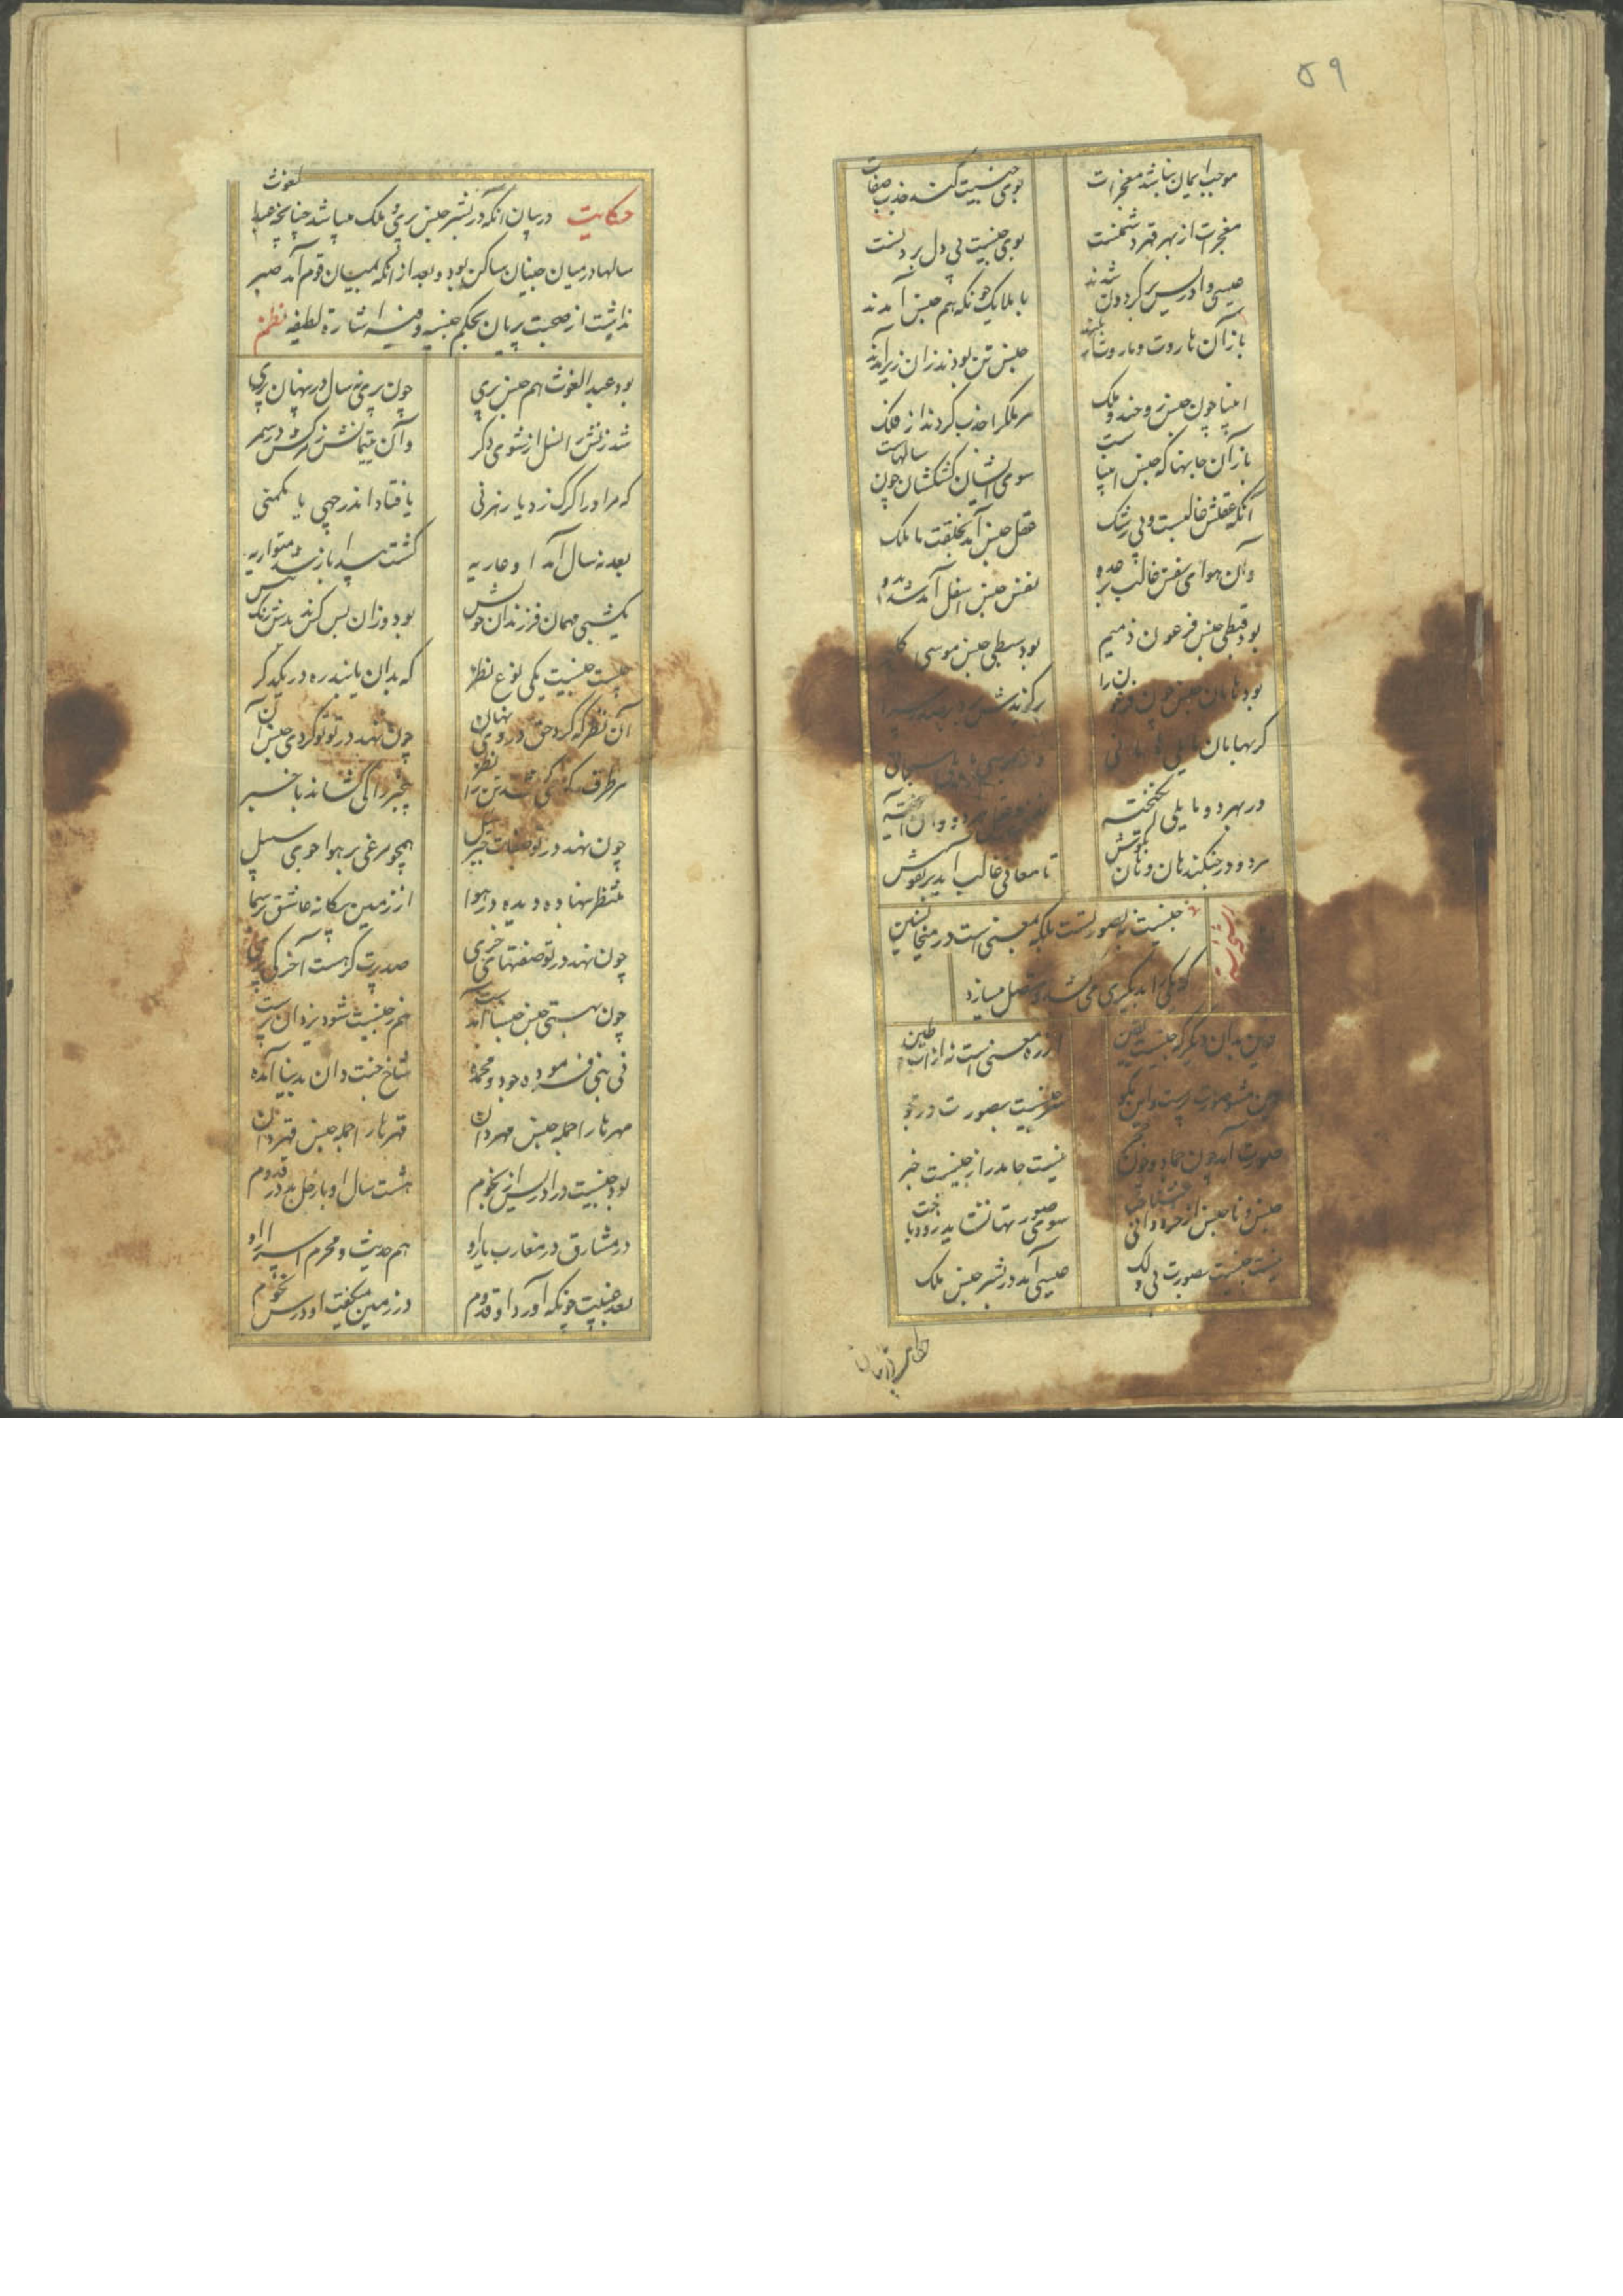 ۵۹
موجب ایمان نباشد معجزات بوی جنسیت کند جذب صفات
معجزات از بهر قهر دشمنست بوی جنسیت پی دل بردنست
عیسی و ادریس بر کردون شدند با ملایک چونکه هم جنس آمدند
باز آن هاروت و ماروت از بلند جنس تن بودند زان زیر آمدند
انبیا چون جنس روحند و ملک مر ملک را جذب کردند از فلک
باز آن جانها که جنس انبیاست سوی ایشان کشکشان چون سالهاست
آنکه عقلش غالبست و بی ز شک عقل جنس آمد بخلقت با ملک
وان هوای نفس غالب بر عدو نفس جنس اسفل آمد شد بدو
بود قبطی جنس فرعون ذمیم بود سبطی جنس موسی کلیم
بود هامان جنس چون فرعون را برکزیدش برد بر صدر سرا
کر بهامان مایلی هامانی
در بهر دو مایلی انکیخته
هر دو در جنکند هان و هان بکوش تا معانی غالب آید بر نقوش
جنسیت نه بصورتست بلکه بمعنی است در میخا لنین
که یکی را بدیکری می کشد و متصل میسازد
از ره معنی است نه از آب و طین
هین مشو صورت پرست و این مکو سر جنسیت بصورت در مجو
صورت آمد چون جماد و چون حجر نیست جامد را ز جنسیت خبر
جنس و ناجنس از خرد دانی شناخت سوی صورتها نشاید زود تاخت
نیست جنسیت بصورت لی و لک عیسی آمد در بشر جنس ملک
حکایت در بیان آنکه در بشر جنس پری و ملک میباشد چنانچه عبدالغوث
سالها در میان جنیان ساکن بود و بعد از آنکه بمیان قوم آمد صبر
نداشت از صحبت پریان بحکم جنسیه و فیه اشارة لطیفه نظم
بود عبد الغوث هم جنس پری چون پری نه سال در پنهان پری
شد زنش را نسل از شوی دکر وآن یتیمانش ز مرکش در سمر
که مر او را کرک زد یا رهزنی یا فتاد اندر چهی یا مکمنی
بعد نه سال آمد او عاریه کشت پیدا باز شد متواریه
یکشبی مهمان فرزندان خویش بود و زان پس کس ندیدش رنک بیش
چیست جنسیت یکی نوع نظر که بدان یابند ره در یکدکر
آن نظر که کرد حق در وی نهان چون نهد در تو تو کردی جنس آن
هر طرف چه میکشد تن را نظر بیخبر را کی کشاند با خبر
چون نهد در تو صفات جبرئیل همچو مرغی بر هوا جوی سبیل
منتظر بنهاده دیده در هوا از زمین بیکانه عاشق بر سما
چون نهد در تو صفتهای خری صد پرت کر هست آخر کی پری
چون بهشتی جنس جنت آمدست هم ز جنسیت شود یزدان پرست
نی نبی فرموده جود و محمده شاخ جنت دان بدنیا آمده
مهرها را جمله جنس مهر دان قهرها را جمله جنس قهر دان
بود جنسیت در ادریس از نجوم هشت سال او با زحل بد در قدوم
در مشارق در مغارب یار او هم حدیث و محرم اسرار او
بعد غیبت چونکه آورد او قدوم در زمین میکفت او درس نجوم